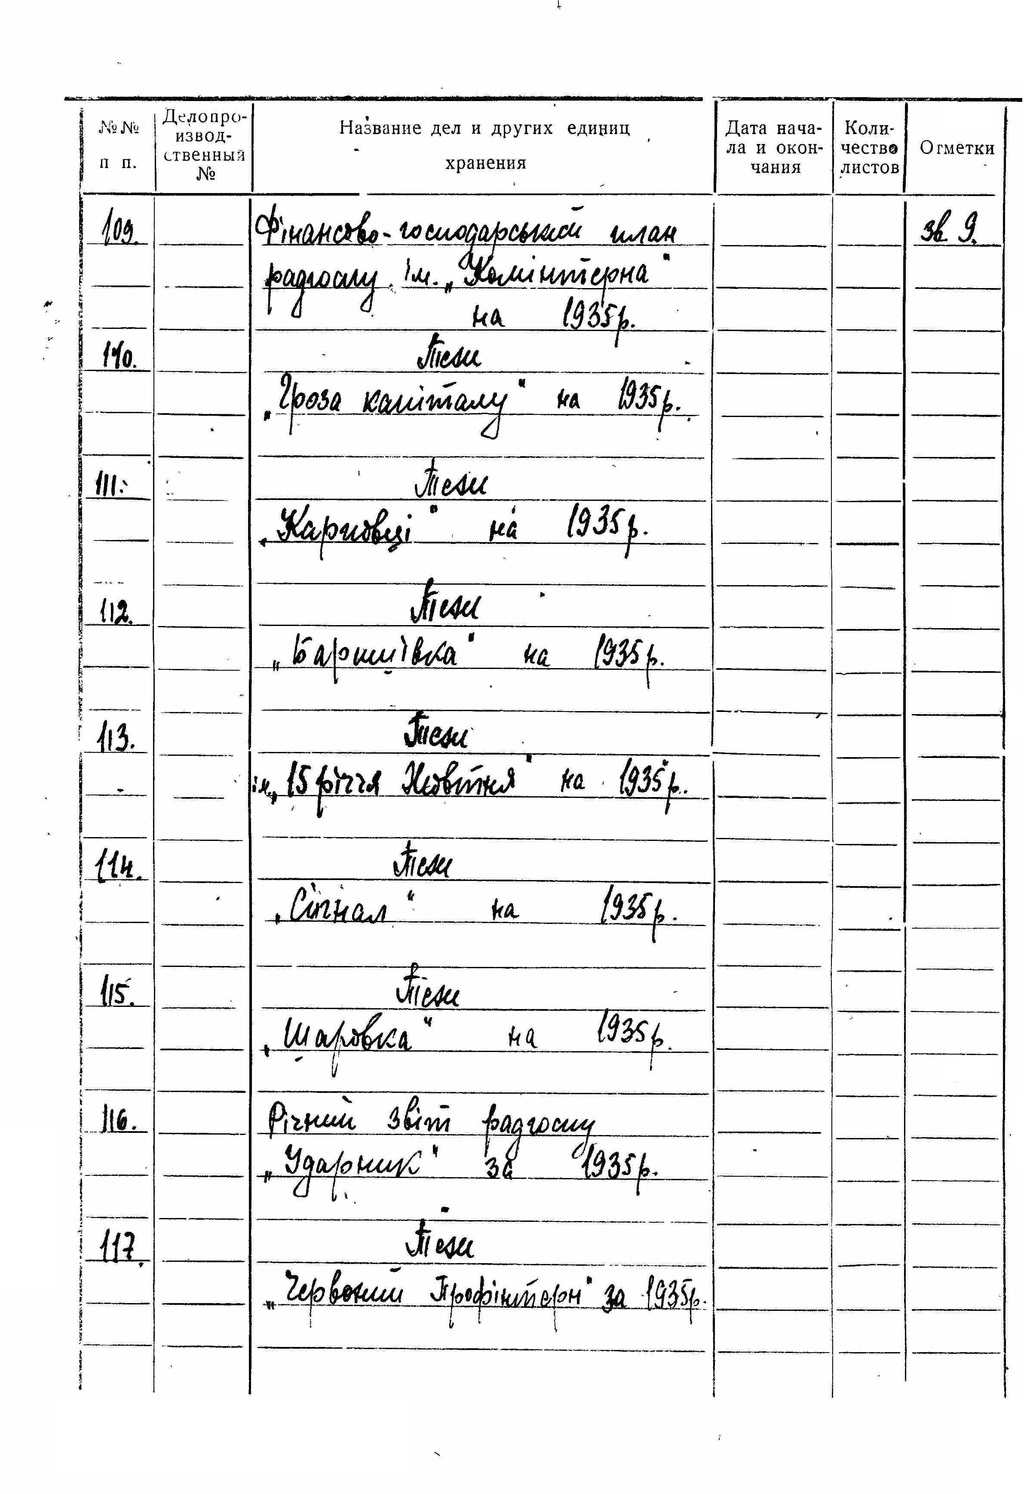 №№ п п.
Делопроизводственный №
Название дел и других единиц хранения
Дата начала и окончания
Количество листов
Отметки
109. Фінансово-господарський план зв 9.
радгоспу ім. „Комінтерна"
на 1935р.
110. Тієй
„Гроза капіталу" на 1935р.
111. Тієй
„Карповці" на 1935р.
112. Тієй
на 1935р.
113. Тієй
ім. „15 річчя Жовтня" на 1935р.
114. Тієй
„Сігнал" на 1935р.
115. Тієй
„Шаровка" на 1935р.
116. Річний звіт радгоспу
„Ударник" за 1935р.
117. Тієй
„Червоний Профінтерн" за 1935р.